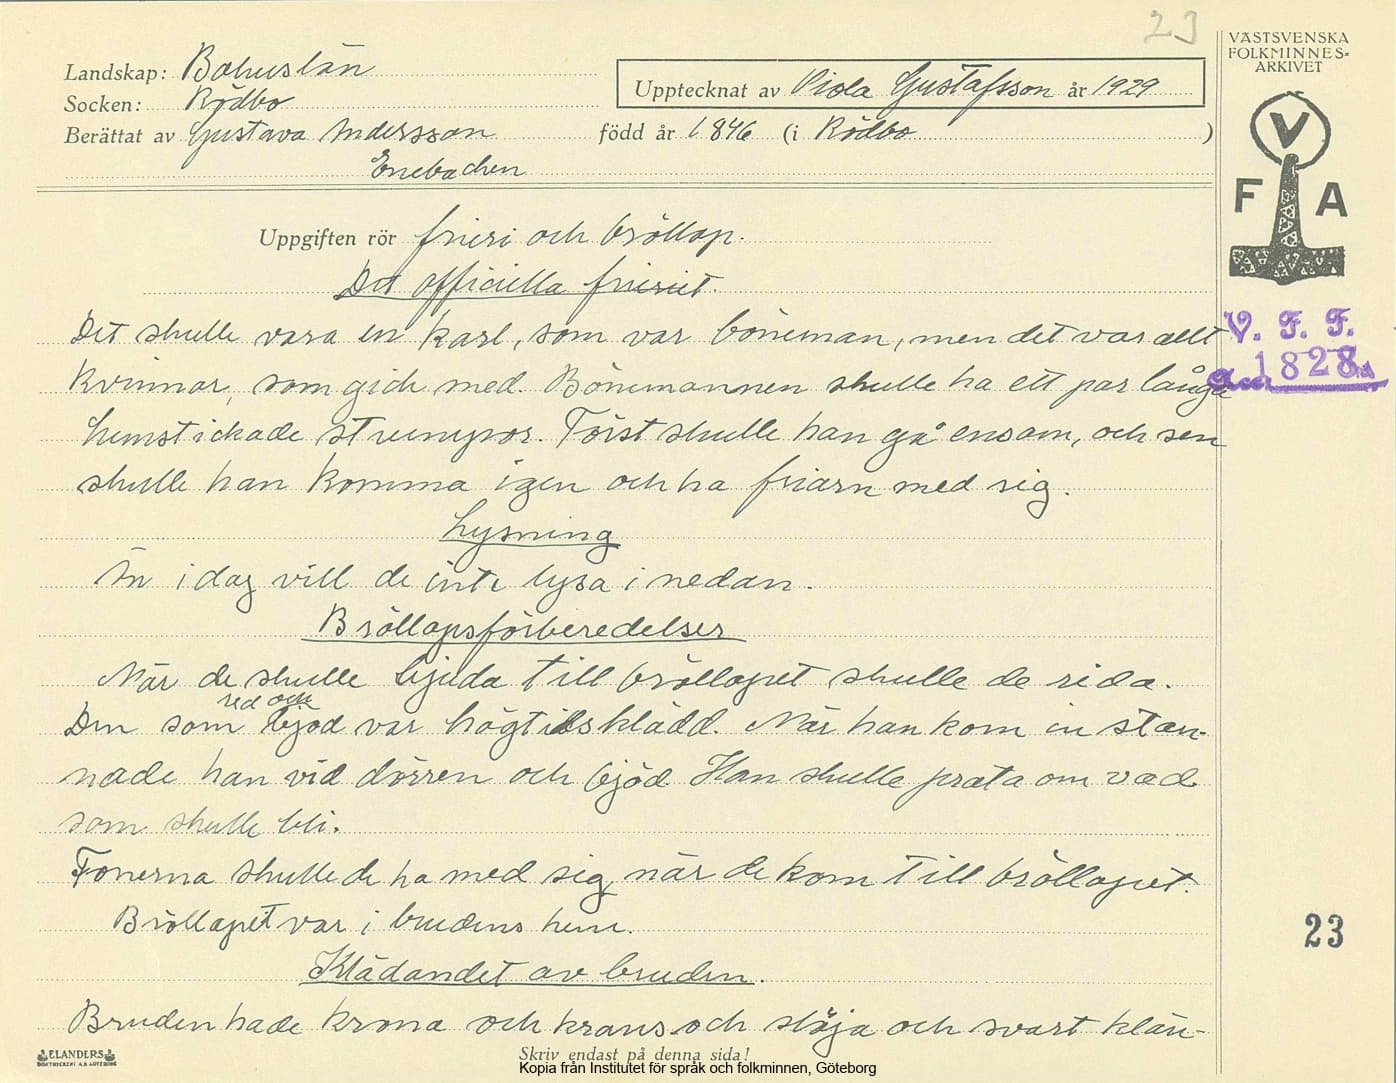 23
VÄSTSVENSKA
FOLKMINNES=
ARKIVET
Landskap: Bohuslän
Socken: Rödbo
Upptecknat av Viola Gustafsson år 1929
Berättat av Gustava Andersson född år 1846 (i Rödbo )
Enebacken
V
F A
Uppgiften rör frieri och bröllop.
Det officiella frieriet.
Det skulle vara en karl, som var böneman, men det var allt
kvinnor, som gick med. Bönemannen skulle ha ett par långa
hemstickade strumpor. Först skulle han gå ensam, och sen
skulle han komma igen och ha friarn med sig.
V. F. F.
Acc. 1828
Lysning
Än i dag vill de inte lysa i nedan.
Bröllopsförberedelser
När de skulle bjuda till bröllopet skulle de rida.
red och
Den som bjöd var högtidsklädd. När han kom in stan-
nade han vid dörren och bjöd. Han skulle prata om vad
som skulle bli.
Fonerna skulle de ha med sig, när de kom till bröllopet.
Bröllopet var i brudens hem.
23
Klädandet av bruden.
Bruden hade krona och krans och slöja och svart klän-
ELANDERS
BOKTRYCKERI A.B. GÖTEBORG
Skriv endast på denna sida!
Kopia från Institutet för språk och folkminnen, Göteborg